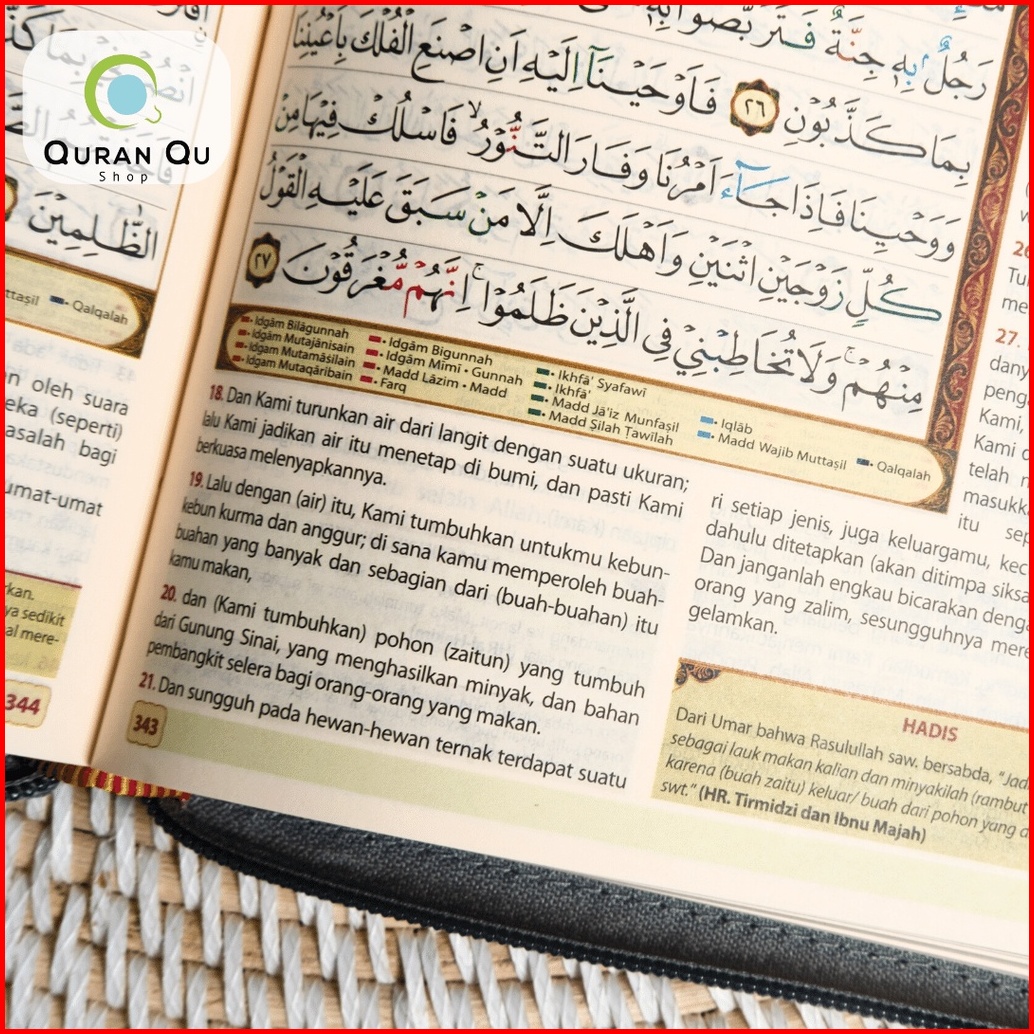 QURAN QU
Shop
رَجُلٌۢ بِهٖ جِنَّةٌ فَتَرَبَّصُوْا بِهٖ
بِمَا كَذَّبُوْنِ ٢٦ فَاَوْحَيْنَآ اِلَيْهِ اَنِ اصْنَعِ الْفُلْكَ بِاَعْيُنِنَا
وَوَحْيِنَا فَاِذَا جَاۤءَ اَمْرُنَا وَفَارَ التَّنُّوْرُۙ فَاسْلُكْ فِيْهَا مِنْ
كُلٍّ زَوْجَيْنِ اثْنَيْنِ وَاَهْلَكَ اِلَّا مَنْ سَبَقَ عَلَيْهِ الْقَوْلُ
مِنْهُمْۚ وَلَا تُخَاطِبْنِيْ فِى الَّذِيْنَ ظَلَمُوْاۚ اِنَّهُمْ مُّغْرَقُوْنَ ٢٧
الظّٰلِمِيْنَ
Idgām Bilāgunnah
Idgām Mutajānisain
Idgam Mutamāšilain
Idgam Mutaqāribain
Idgām Bigunnah
Idgām Mīmī • Gunnah
Madd Lāzim • Madd
Farq
Ikhfā' Syafawī
Ikhfā'
Madd Jā'iz Munfaṣil
Madd Ṣilah Ṭawīlah
Iqlāb
Madd Wajib Muttaṣil
Qalqalah
18. Dan Kami turunkan air dari langit dengan suatu ukuran;
lalu Kami jadikan air itu menetap di bumi, dan pasti Kami
berkuasa melenyapkannya.
19. Lalu dengan (air) itu, Kami tumbuhkan untukmu kebun-
kebun kurma dan anggur; di sana kamu memperoleh buah-
buahan yang banyak dan sebagian dari (buah-buahan) itu
kamu makan,
20. dan (Kami tumbuhkan) pohon (zaitun) yang tumbuh
dari Gunung Sinai, yang menghasilkan minyak, dan bahan
pembangkit selera bagi orang-orang yang makan.
21. Dan sungguh pada hewan-hewan ternak terdapat suatu
343
ri setiap jenis, juga keluargamu, kec
dahulu ditetapkan (akan ditimpa siksa
Dan janganlah engkau bicarakan denga
orang yang zalim, sesungguhnya mere
gelamkan.
HADIS
Dari Umar bahwa Rasulullah saw. bersabda, "Jad
sebagai lauk makan kalian dan minyakilah (rambut
karena (buah zaitu) keluar/ buah dari pohon yang d
swt." (HR. Tirmidzi dan Ibnu Majah)
27.
dany
peng
Kami,
Kami d
telah m
masukk
itu sep
Qalqalah
oleh suara
eka (seperti)
asalah bagi
umat-umat
rkan.
ya sedikit
al mere-
344